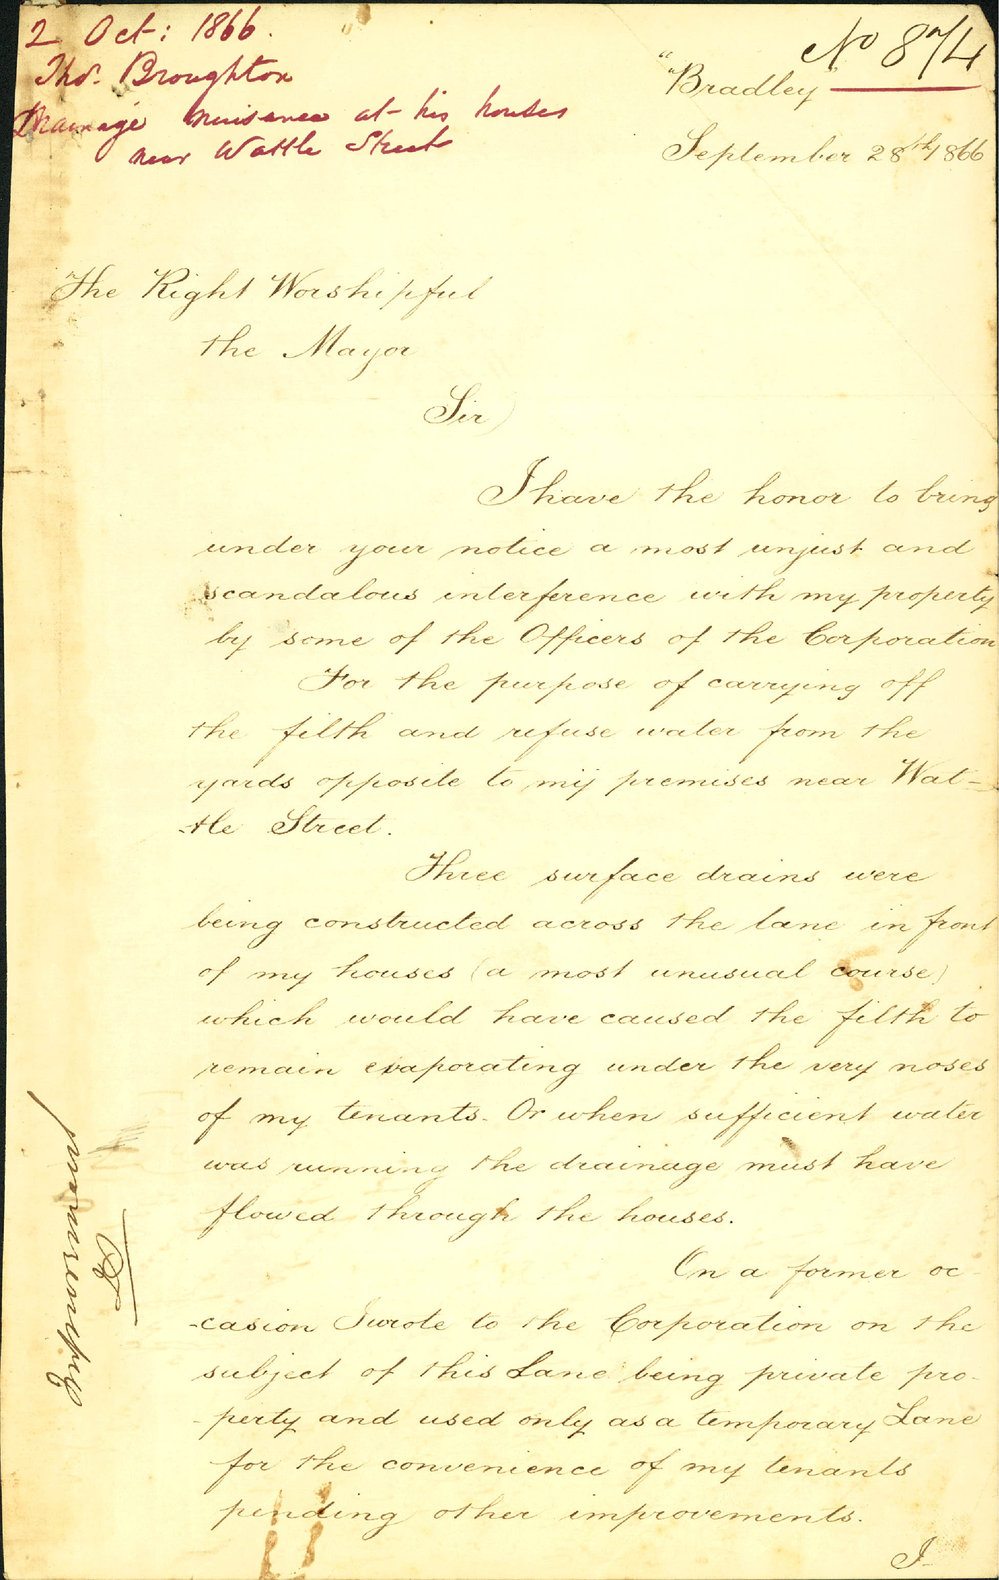 2 Oct: 1866.
Thos. Broughton
Drainage nuisance at his houses
near Wattle Street
No 874
"Bradley"
September 28th/1866
The Right Worshipful
the Mayor
Sir)
I have the honor to bring
under your notice a most unjust and
scandalous interference with my property
by some of the Officers of the Corporation
For the purpose of carrying off
the filth and refuse water from the
yards opposite to my premises near Wat-
-tle Street.
Three surface drains were
being constructed across the lane in front
of my houses (a most unusual course)
which would have caused the filth to
remain evaporating under the very noses
of my tenants. Or when sufficient water
was running the drainage must have
flowed through the houses.
On a former oc-
-casion I wrote to the Corporation on the
subject of this Lane being private pro-
-perty and used only as a temporary Lane
for the convenience of my tenants
pending other improvements.
I